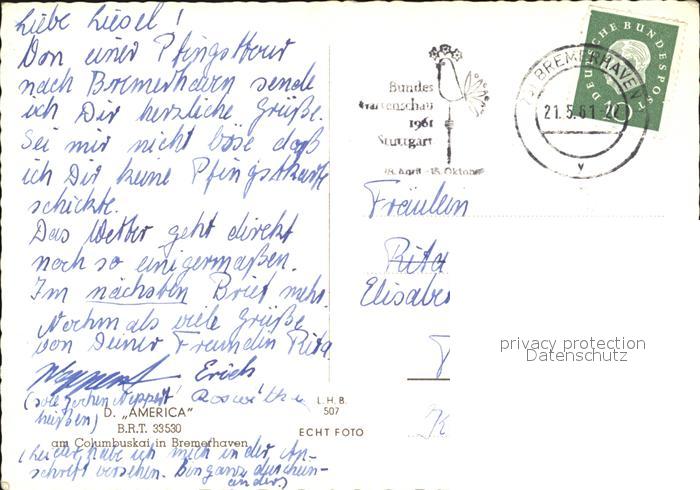 Liebe Liesel!
Von einer Pfingsttour
nach Bremerhaven sende
ich Dir herzliche Grüße.
Sei mir nicht böse daß
ich Dir keine Pfingstkarte
schickte.
Das Wetter geht direkt
noch so einigermaßen.
Im nächsten Brief mehr.
Nochmals viele Grüße
von Deiner Freundin Rita
Erich
(soll Jochen Neppert
heißen)
D. „AMERICA"
B.R.T. 33530
am Columbuskai in Bremerhaven
(Leider habe ich mich in der An-
schrift versehen. Bin ganz durchein-
ander)
L.H.B.
507
ECHT FOTO
Bundes
Gartenschau
1961
Stuttgart
28. April - 15. Oktober
BREMERHAVEN
21.5.61-20
DEUTSCHE BUNDESPOST
10
Fräulein
Rita
Elisabe
privacy protection
Datenschutz